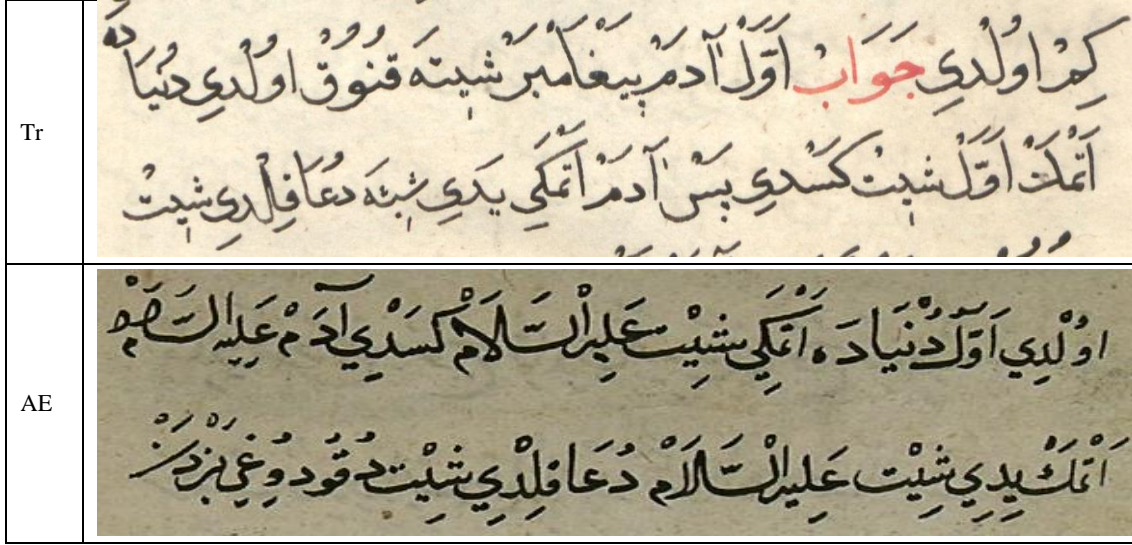 Tr
كِمْ اوُلْدِي جَوَابْ اَوَّلْ آدَمْ پَيْغَامْبَرْ شِيتَه قُنُوقْ اوُلْدِي دُنْيَاده
اَتْمَكْ اَوَّلْ شِيتْ كَسْدِي پَسْ آدَمْ اَتْمَكِي يَدِي شِيتَه دُعَا قِلْدِي شِيتْ
AE
اوُلْدِي اَوَّلْ دُنْيَادَه اَتْمَكِي شِيْتْ عَلِيْه السَّلَامْ كَسْدِي آدَمْ عَلِيْه
اَتْمَكْ يِيدِي شِيْتْ عَلِيْه السَّلَامْ دُعَا قِلْدِي شِيْتْ دُقُودُوغِي بَزْدَنْ